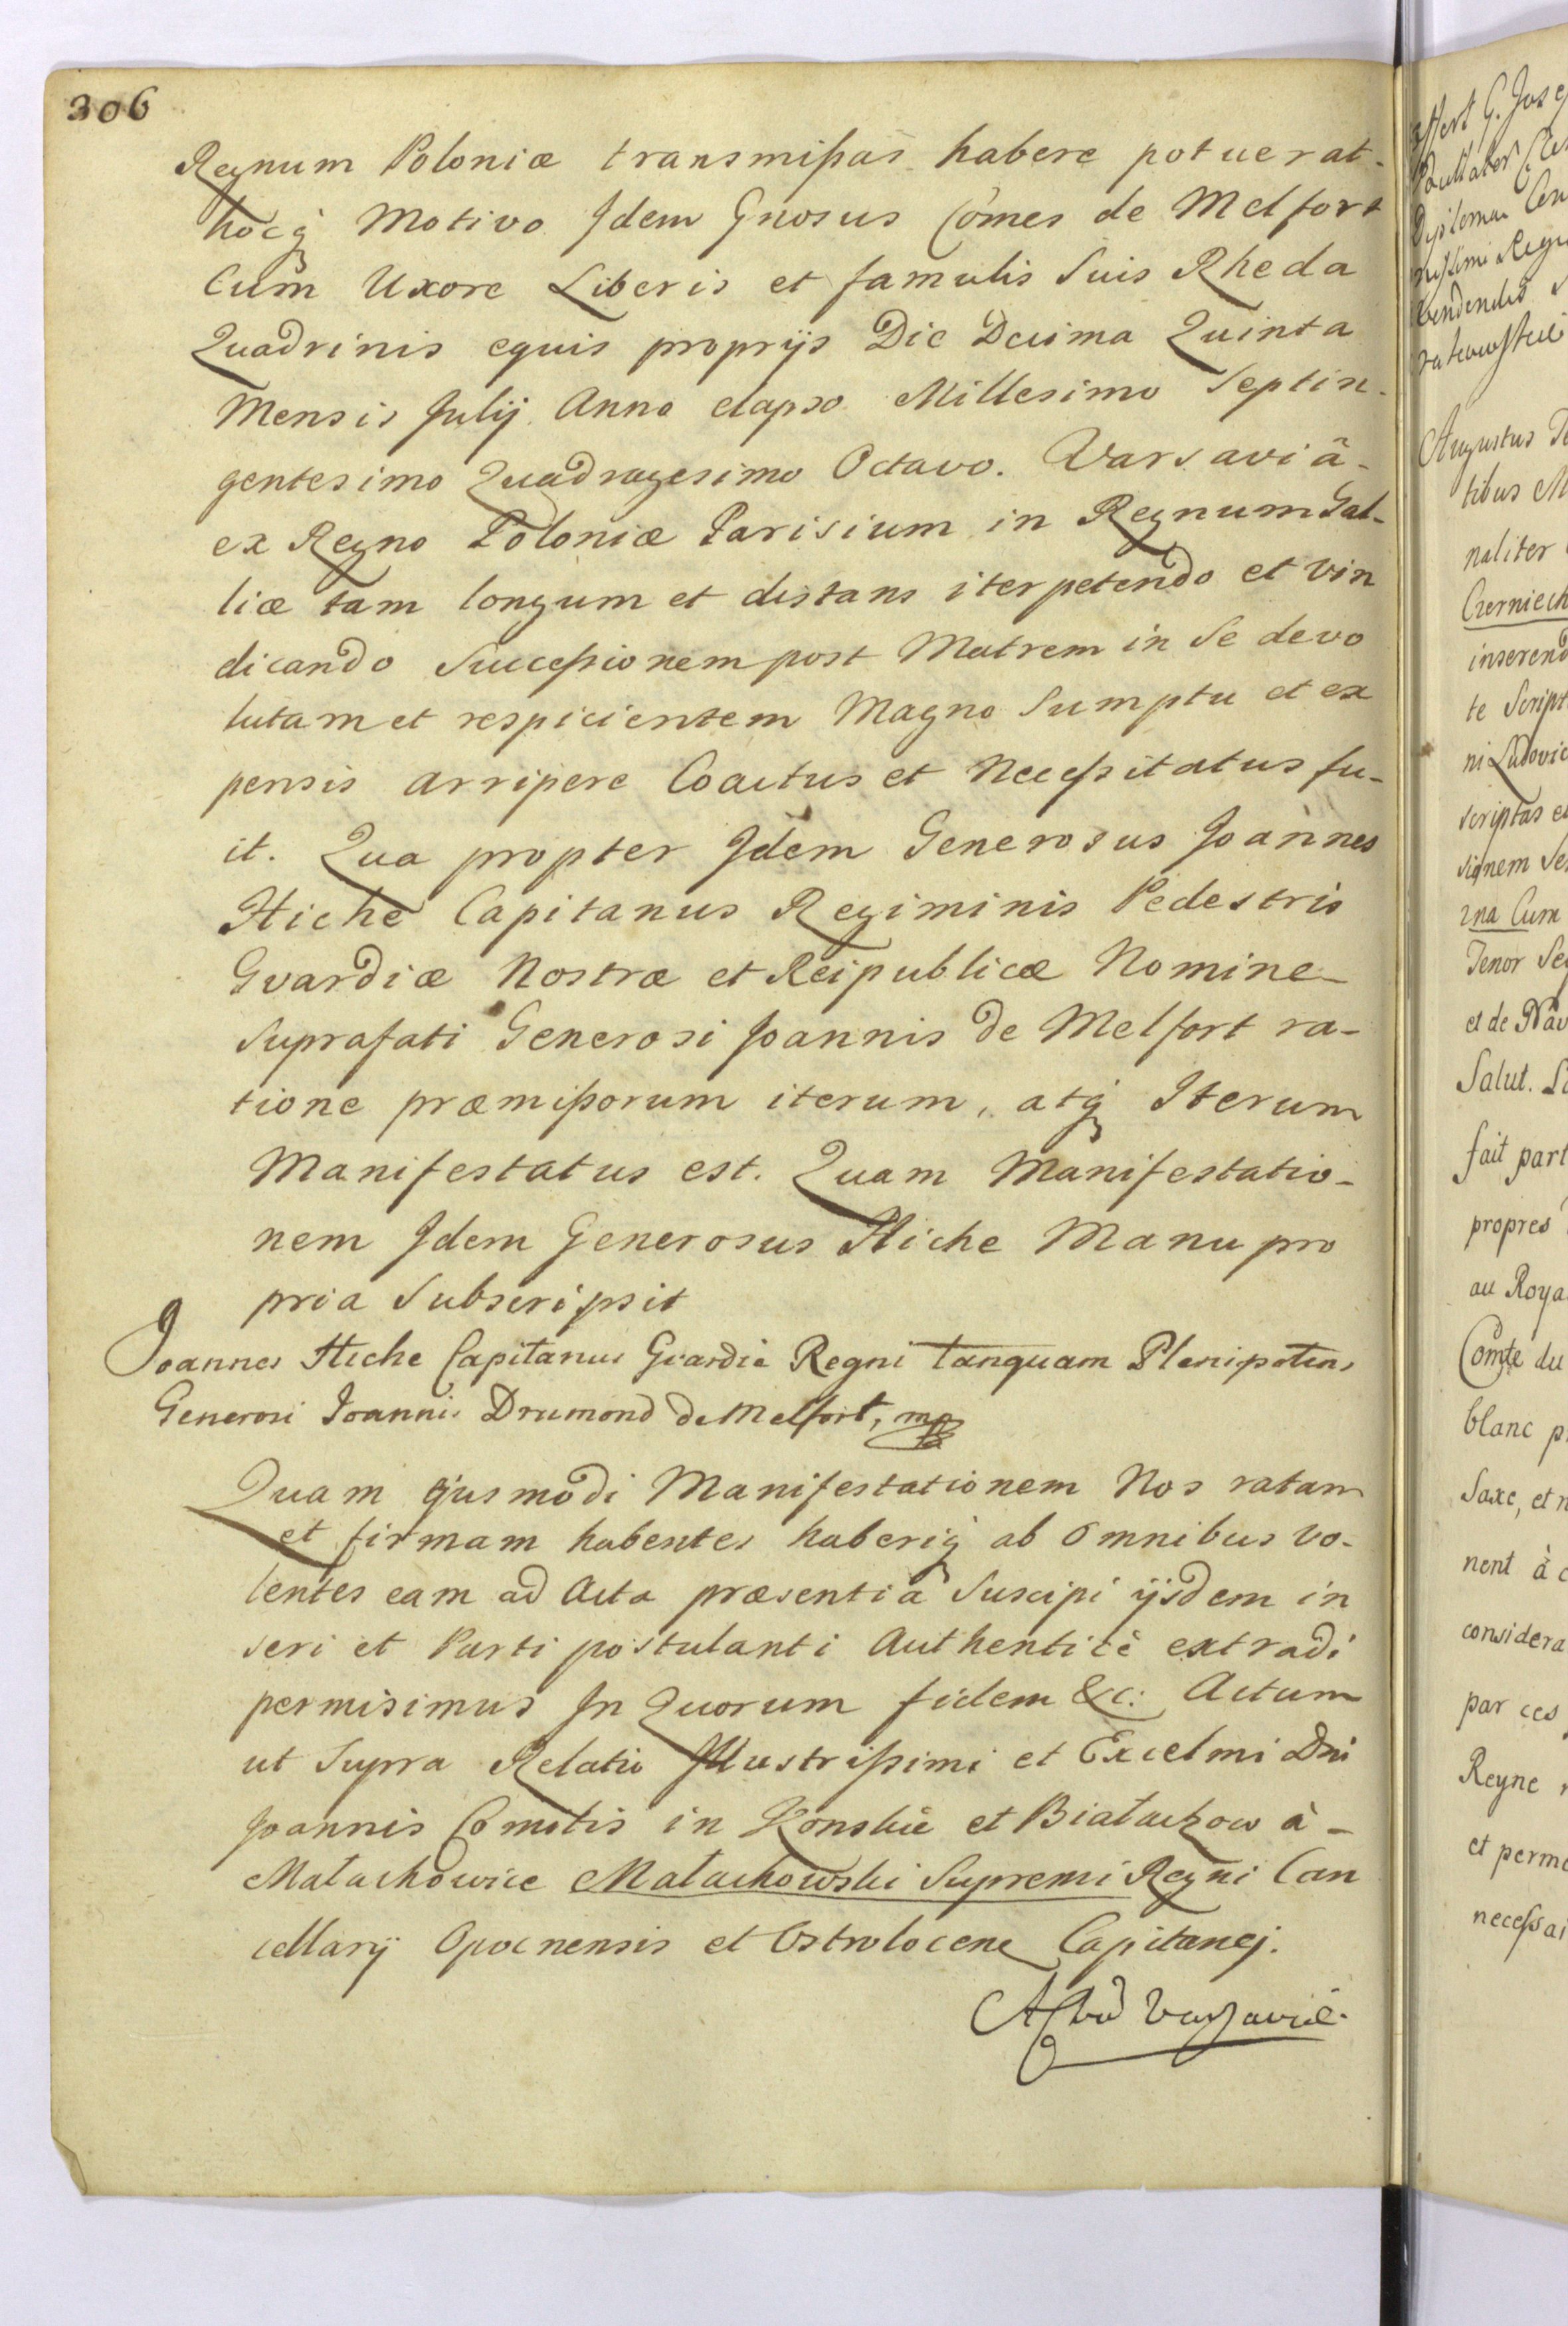 306
Regnum Poloniæ transmißas habere potuerat-
hocq́ Motivo Idem Gnosus Comes de Melfort
Cum Uxore Liberis et famulis Suis Rheda
Quadrinis equis proprijs Die Decima Quinta
Mensis Julij Anno elapso Millesimo Septin-
gentesimo Quadragesimo Octavo. Varsaviâ-
ex Regno Poloniæ Parisium in Regnum Gal-
liæ tam longum et distans iter petendo et vin
dicando Succeßionem post Matrem in Se devo
lutam et respicientem Magno Sumptu et ex
pensis arripere Coactus et Neceßitatus fu-
it. Qua propter Idem Generosus Joannes
Hiche Capitanus Regiminis Pedestris
Gvardiæ Nostræ et Reipublicæ Nomine-
Suprafati Generosi Joannis de Melfort ra-
tione præmißorum iterum, atq́ Iterum
Manifestatus est. Quam Manifestatio-
nem Idem Generosus Hiche Manu pro
pria Subscripsit
Joannes Hiche Capitanus Gvardiæ Regni tanquam Plenipotens
Generosi Joannis Drumond de Melfort, mp
Quam ejusmodi Manifestationem Nos ratam
et firmam habentes haberiq́ ab omnibus vo-
lentes eam ad Acta præsentia Suscipi ijsdem in
seri et Parti postulanti Authenticè extradi
permisimus In Quorum fidem &c: Actum
ut Supra Relatio Illustrißimi et Excelmi Dni
Joannis Comitis in Konskie et Białaczow à-
Małachowice Małachowski Supremi Regni Can
cellarij Opocnensis et Ostrolocen Capitanej.
Varsaviæ.
Augustus
tibus
naliter
Czerniech
inserend
te Script
ni Ludovic
scriptas
sionem
2na Cum
Tenor
et de Nav
Salut.
fait part
propres
au Roya
Comte du
blanc
Saxe, et
nent à
considera
par ces
Reyne
et perme
necessai